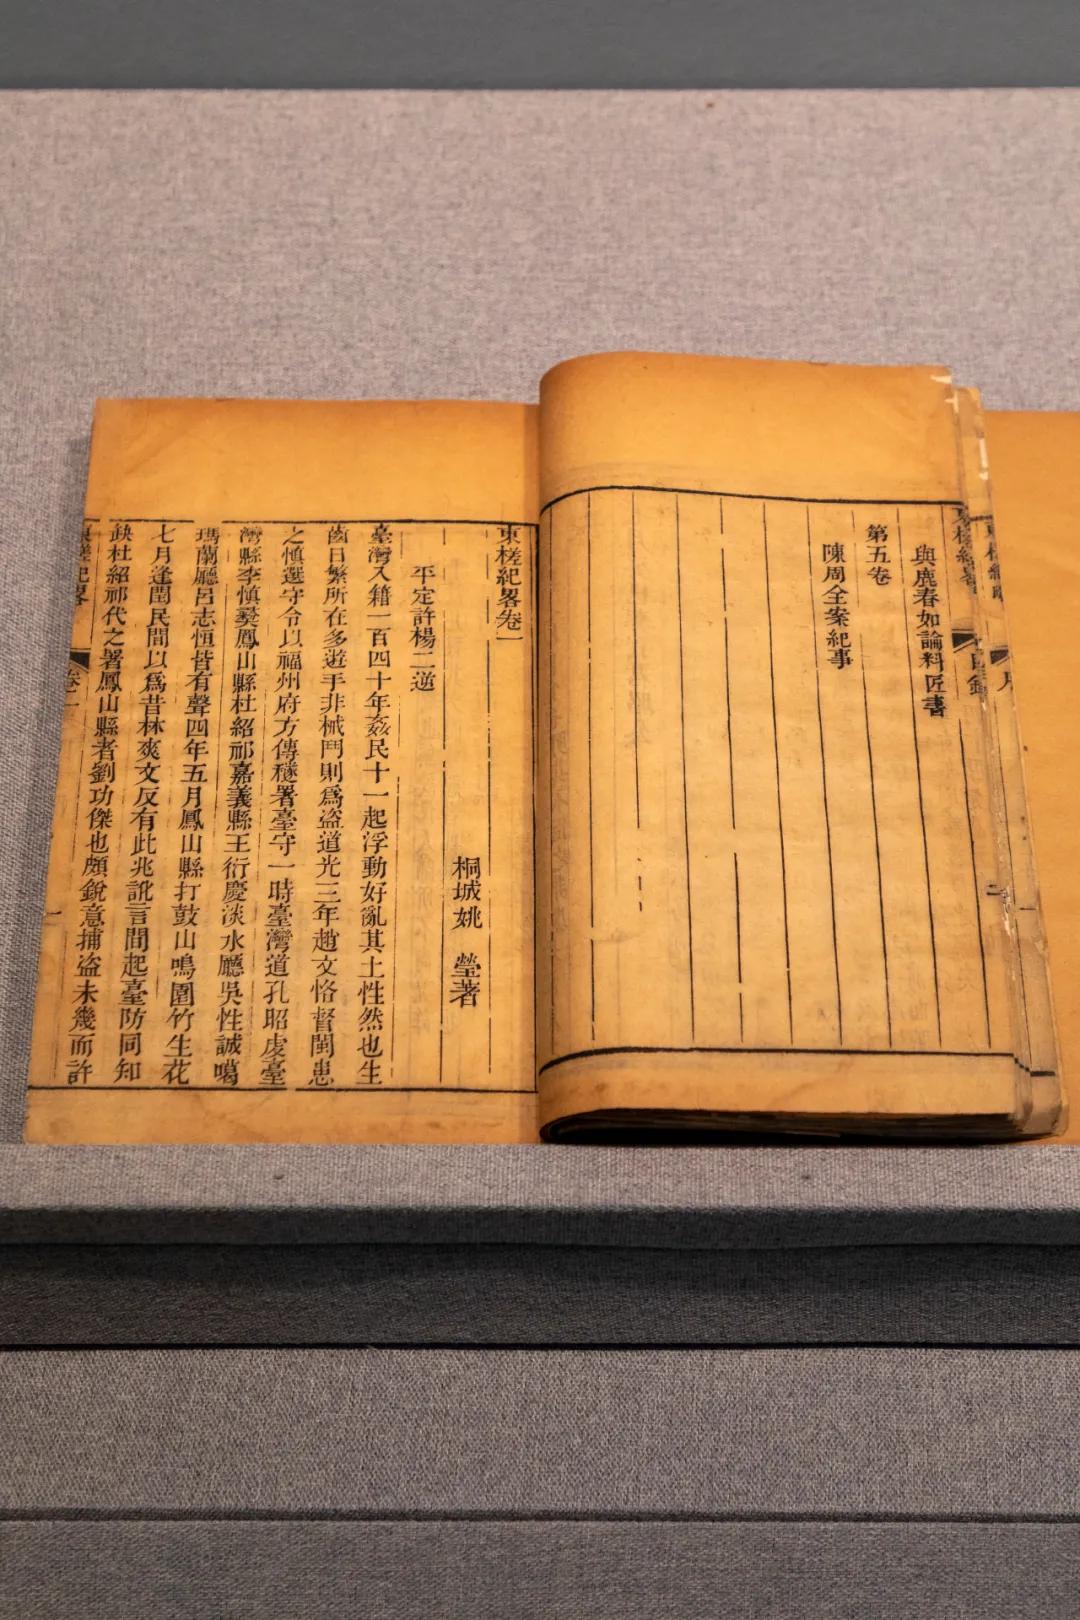 與鹿春如論料匠書
第五卷
陳周全案紀事
東槎紀畧卷一
桐城姚 瑩著
平定許楊二逆
臺灣入籍一百四十年姦民十一起浮動好亂其土性然也生
齒日繁所在多遊手非械鬥則爲盜道光三年趙文恪督閩患
之慎選守令以福州府方傳穟署臺守一時臺灣道孔昭虔臺
灣縣李慎彞鳳山縣杜紹祁嘉義縣王衍慶淡水廳吳性誠噶
瑪蘭廳呂志恒皆有聲四年五月鳳山縣打鼓山鳴園竹生花
七月逢閏民間以爲昔林爽文反有此兆訛言間起臺防同知
缺杜紹祁代之署鳳山縣者劉功傑也頗銳意捕盜未幾而許
東槎紀畧 卷一 一